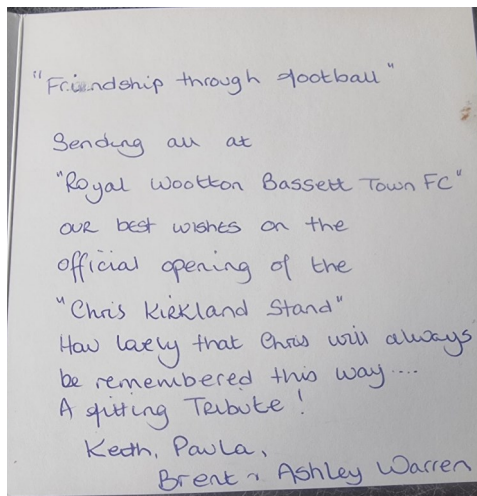 "Friendship through football"
Sending all at
"Royal Wootton Bassett Town FC"
our best wishes on the
official opening of the
"Chris Kirkland Stand"
How lovely that Chris will always
be remembered this way....
A fitting Tribute!
Keith, Paula,
Brent & Ashley Warren